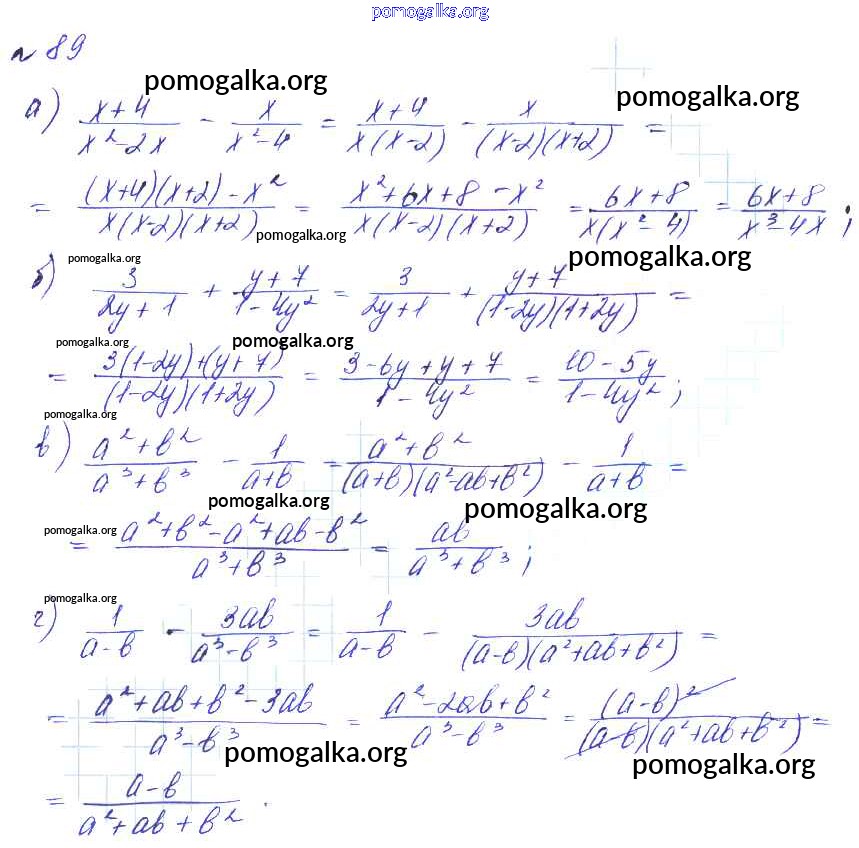 pomogalka.org
№ 89
pomogalka.org pomogalka.org
а) (x+4)/(x²-2x) - x/(x²-4) = (x+4)/(x(x-2)) - x/((x-2)(x+2)) =
= ((x+4)(x+2)-x²)/(x(x-2)(x+2)) = (x²+6x+8-x²)/(x(x-2)(x+2)) = (6x+8)/(x(x²-4)) = (6x+8)/(x³-4x);
pomogalka.org
pomogalka.org pomogalka.org
б) 3/(2y+1) + (y+7)/(1-4y²) = 3/(2y+1) + (y+7)/((1-2y)(1+2y)) =
pomogalka.org
= (3(1-2y)+(y+7))/((1-2y)(1+2y)) = (3-6y+y+7)/(1-4y²) = (10-5y)/(1-4y²);
pomogalka.org
в) (a²+b²)/(a³+b³) - 1/(a+b) = (a²+b²)/((a+b)(a²-ab+b²)) - 1/(a+b) =
pomogalka.org pomogalka.org
pomogalka.org
= (a²+b²-a²+ab-b²)/(a³+b³) = ab/(a³+b³);
pomogalka.org
г) 1/(a-b) - 3ab/(a³-b³) = 1/(a-b) - 3ab/((a-b)(a²+ab+b²)) =
= (a²+ab+b²-3ab)/(a³-b³) = (a²-2ab+b²)/(a³-b³) = (a-b)²/((a-b)(a²+ab+b²)) =
pomogalka.org pomogalka.org
= (a-b)/(a²+ab+b²).